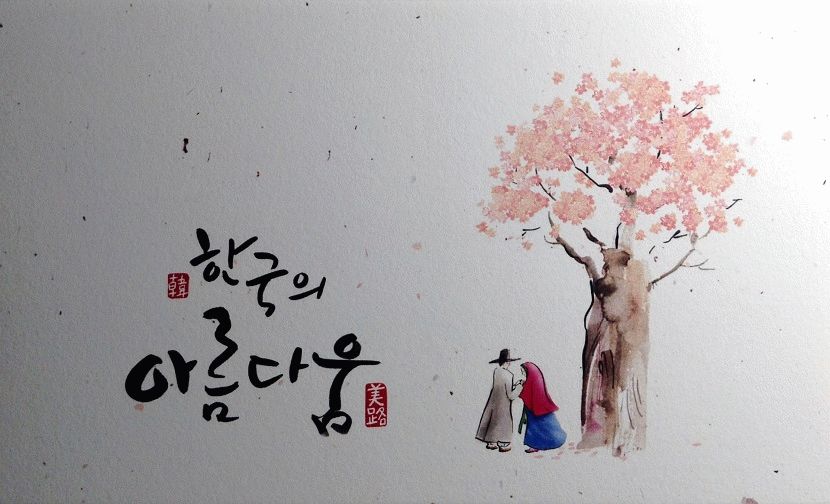 한국의
韓
아름다움
美路